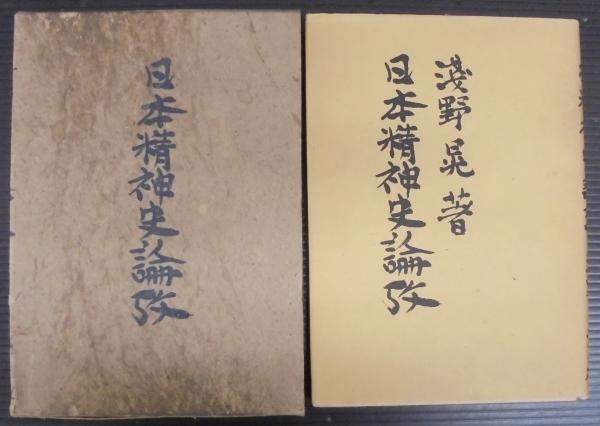 日本精神史論攷
淺野晃著
日本精神史論攷